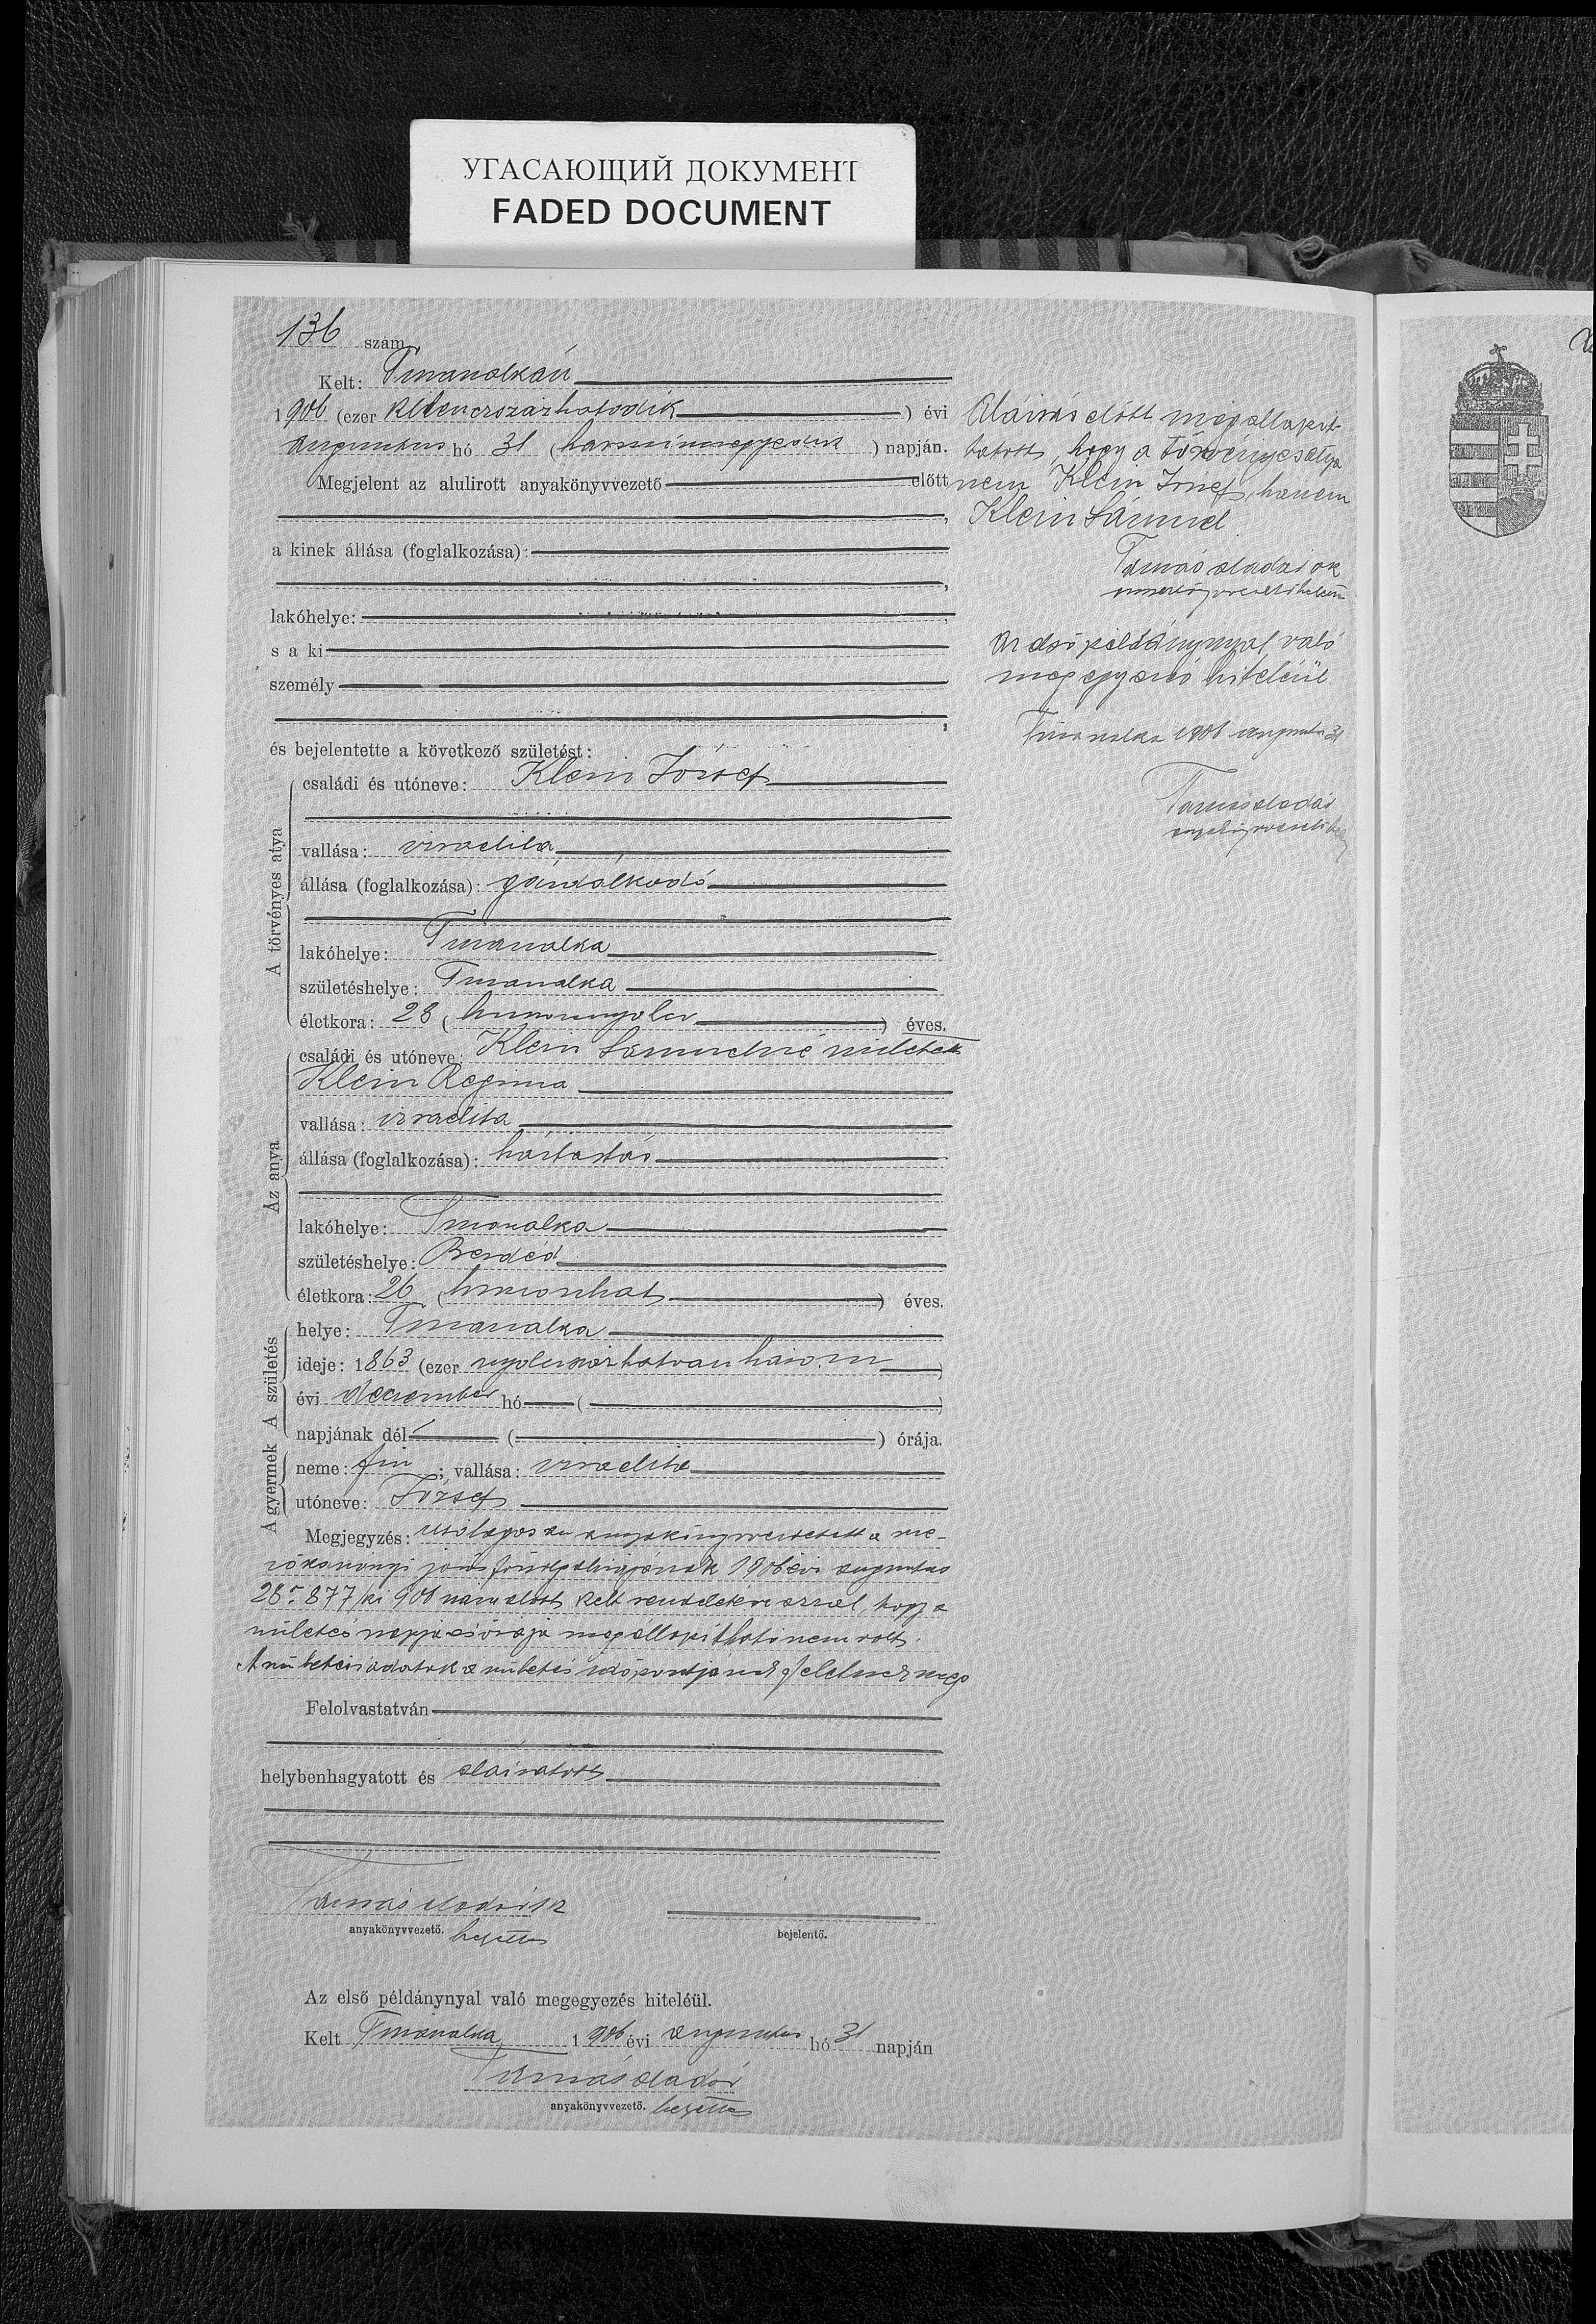 УГАСАЮЩИЙ ДОКУМЕНТ
FADED DOCUMENT
136 szám
Kelt:
1906 (ezer kilencszázhatodik) évi
augusztus hó 31 (harmincegyedik) napján.
Megjelent az alulirott anyakönyvvezető előtt
,
a kinek állása (foglalkozása):
,
lakóhelye: ,
s a ki
személy
,
és bejelentette a következő születést:
A törvényes atya
családi és utóneve: Klein József
vallása: izraelita
állása (foglalkozása): gazdálkodó
lakóhelye:
születéshelye:
életkora: 28 (huszonnyolc) éves.
Az anya
családi és utóneve: Klein Sámuelné született
Klein Regina
vallása: izraelita
állása (foglalkozása): háztartás
lakóhelye:
születéshelye:
életkora: 26 (huszonhat) éves.
A születés
helye:
ideje: 1863 (ezer nyolcszázhatvanhárom)
évi december hó ( )
napjának dél ( ) órája.
A gyermek
neme: fiu; vallása: izraelita
utóneve: József
Megjegyzés: Utólagosan anyakönyveztetett a me-
zőkaszonyi járás főszolgabirájának 1906 évi augusztus
28 877/ki 906 szám alatt kelt rendeletére azzal, hogy a
születés napja és órája megállapítható nem volt.
A születési adatok a születés időpontjának felelnek meg
Felolvastatván
helybenhagyatott és aláíratott
Tamás Aladár sk
anyakönyvvezető. helyettes
bejelentő.
Az első példánynyal való megegyezés hiteléül.
Kelt 1906 évi augusztus hó 31 napján
Tamás Aladár
anyakönyvvezető. helyettes
Aláirás előtt megállapít-
tatott, hogy a törvényes atya
nem Klein József, hanem
Klein Sámuel.
Tamás Aladár sk
anyakönyvvezető helyettes
Az első példánynyal való
megegyezés hiteléül.
1906 augusztus 31
Tamás Aladár
anyakönyvvezető